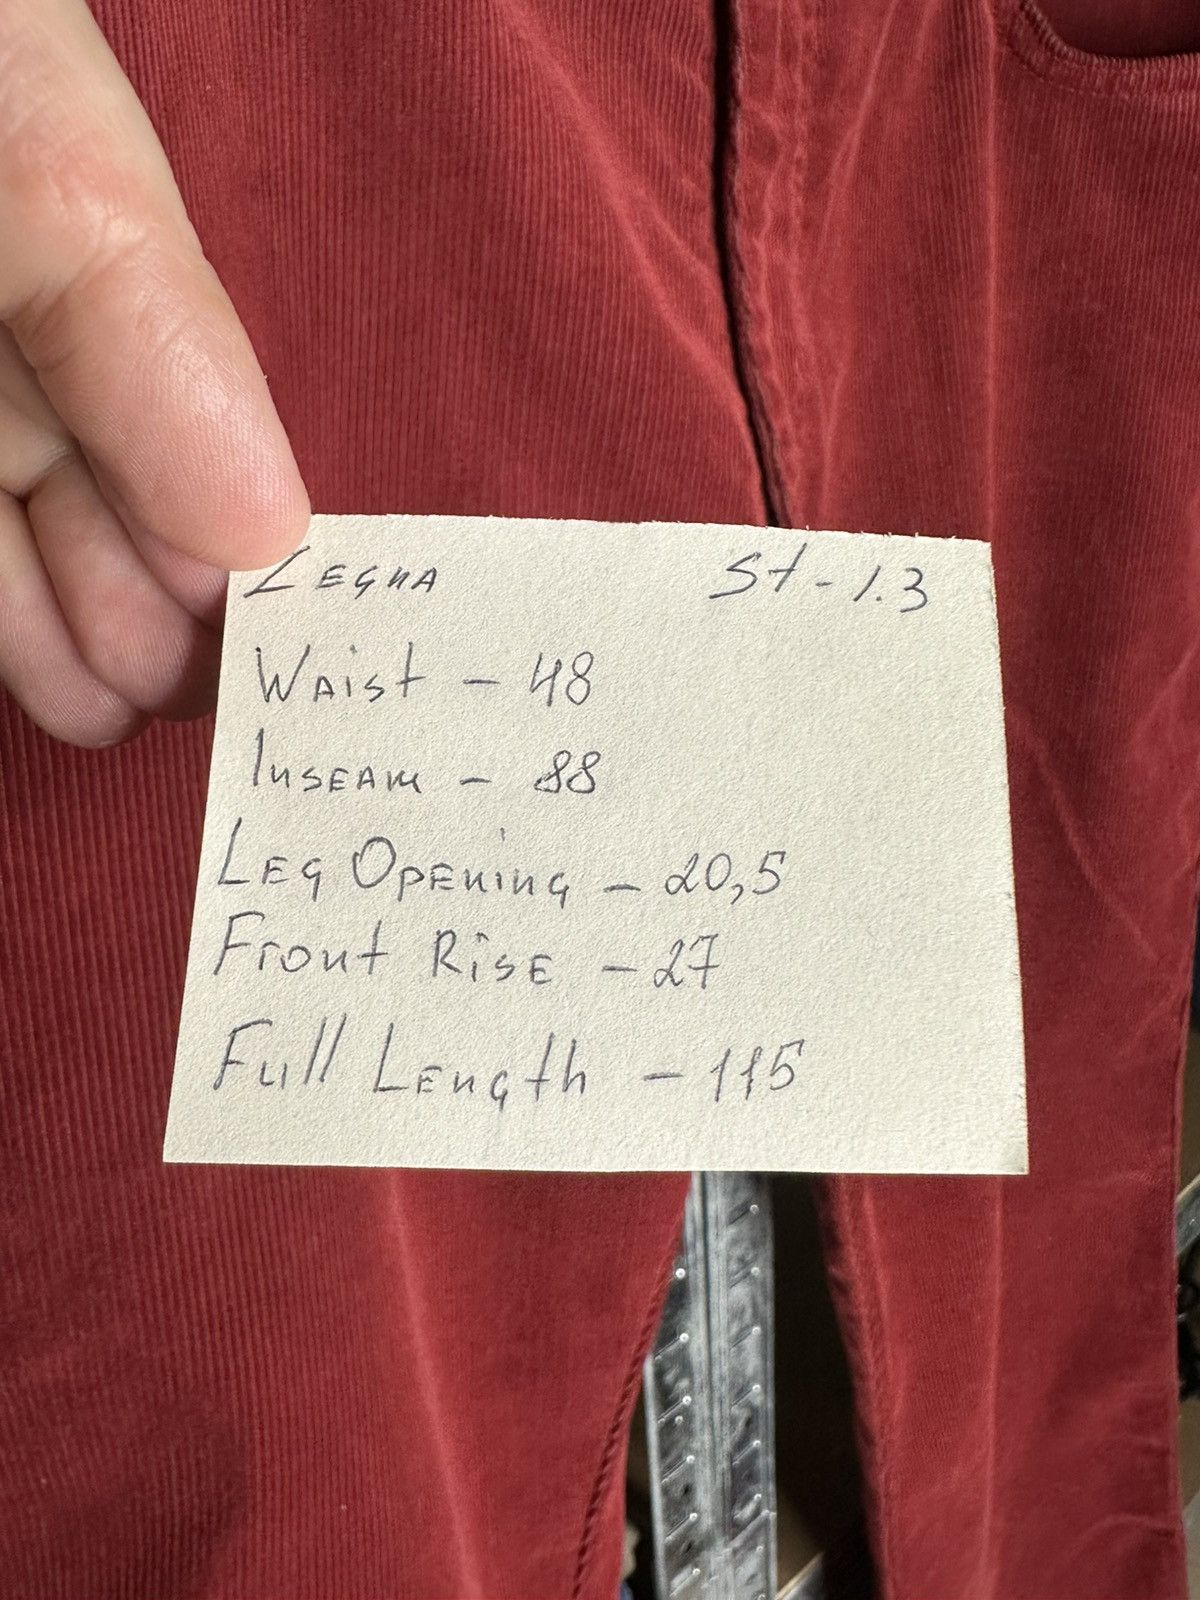 Legna St-1.3
Waist - 48
Inseam - 88
Leg Opening - 20,5
Front Rise - 27
Full Length - 115